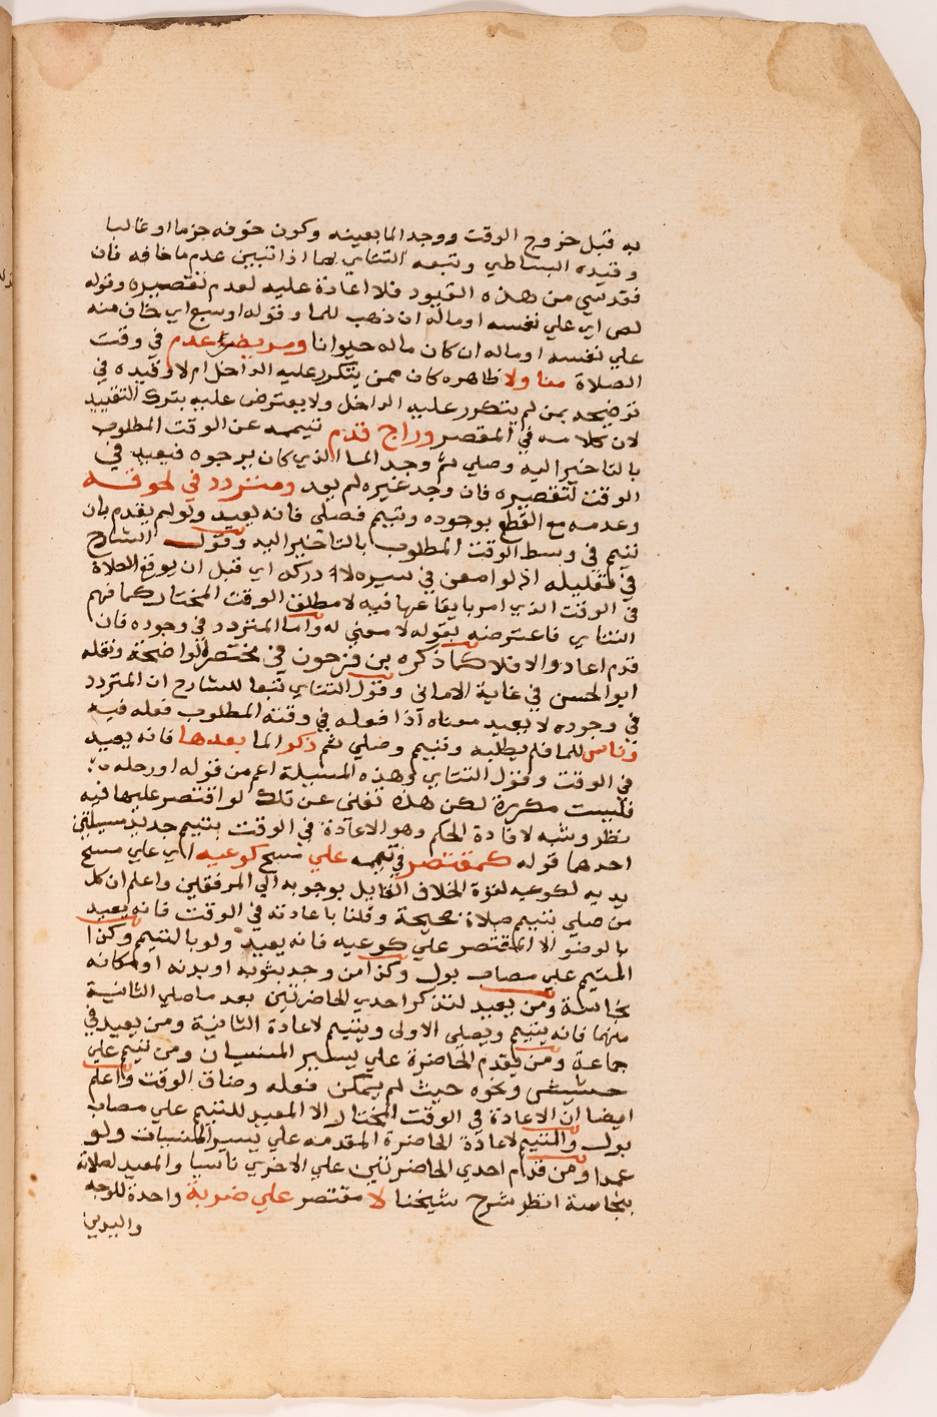 به قبل خروج الوقت ووجد الما بعينه وكون خوفه جزما او غالبا
وقيده البساطي وتبعه التتاي بما اذا تبين عدم ما خافه فان
فقد شي من هذه القيود فلا اعادة عليه لعدم تقصيره وقوله
لص اي علي نفسه او ماله ان ذهب للما وقوله او سبع اي خاف منه
علي نفسه او ماله ان كان ماله حيوانا ومريض عدم في وقت
الصلاة منا ولا ظاهره كان ممن يتكرر عليه الداخل ام لا وقيده في
توضيحه بمن لم يتكرر عليه الداخل ولا يعترض عليه بترك التقييد
لان كلامه في المقصر وراج قدم تيممه عن الوقت المطلوب
بالتاخير اليه وصلي ثم وجد الما الذي كان يرجوه فيعيد في
الوقت لتقصيره فان وجد غيره لم يعد ومتردد في لحوقه
وعدمه مع القطع بوجوده وتيمم فصلي فانه يعيد ولو لم يقدم بان
تيمم في وسط الوقت المطلوب بالتاخير اليه وقول الشارح
في تعليله اذ لو امعن في سيره لادركه اي قبل ان يوقع الصلاة
في الوقت الذي امر بايقاعها فيه لا مطلق الوقت المختار كما فهم
التتاي فاعترضه بقوله لا معني له واما المتردد في وجوده فان
قدم اعاد والا فلا كما ذكره بن فرحون في مختصر الواضحة ونقله
ابو الحسن في غاية الاماني وقول التتاي تبعا للشارح ان المتردد
في وجوده لا يعيد معناه اذا فعله في وقته المطلوب فعله فيه
وناس للما فلم يطلبه وتيمم وصلي ثم ذكر الما بعدها فانه يعيد
في الوقت وقول التتاي وهذه المسيلة اعم من قوله او رحله
فليست مكررة لكن هذه تغني عن تلك لو اقتصر عليها فيه
نظر وشبه لافادة الحكم وهو الاعادة في الوقت بتيمم جديد مسيلتين
احدهما قوله كمقتصر في تيممه علي مسح كوعيه اي علي مسح
يديه لكوعيه لقوة الخلاف القايل بوجوبه الي المرفقين واعلم ان كل
من صلي بتيمم صلاة صحيحة وقلنا باعادته في الوقت فانه يعيد
بالوضو الا المقتصر علي كوعيه فانه يعيد ولو بالتيمم وكذا
المتيمم علي مصاب بول وكذا من وجد بثوبه او بدنه او مكانه
نجاسة ومن يعيد لتذكر احدي الحاضرتين بعد ما صلي الثانية
منهما فانه يتيمم ويصلي الاولي ويتيمم لاعادة الثانية ومن يعيد في
جماعة ومن يقدم الحاضرة علي يسير المنسيات ومن تيمم علي
حشيش ونحوه حيث لم يتمكن فعله وضاق الوقت واعلم
ايضا ان الاعادة في الوقت المختار الا المعيد للتيمم علي مصاب
بول والتيمم لاعادة الحاضرة المقدمه علي يسير المنسيات ولو
عمدا ومن قدم احدي الحاضرتين علي الاخري ناسيا والمعيد لصلاته
بنجاسة انظر شرح شيخنا لا مقتصر علي ضربة واحدة للوجه
واليدين